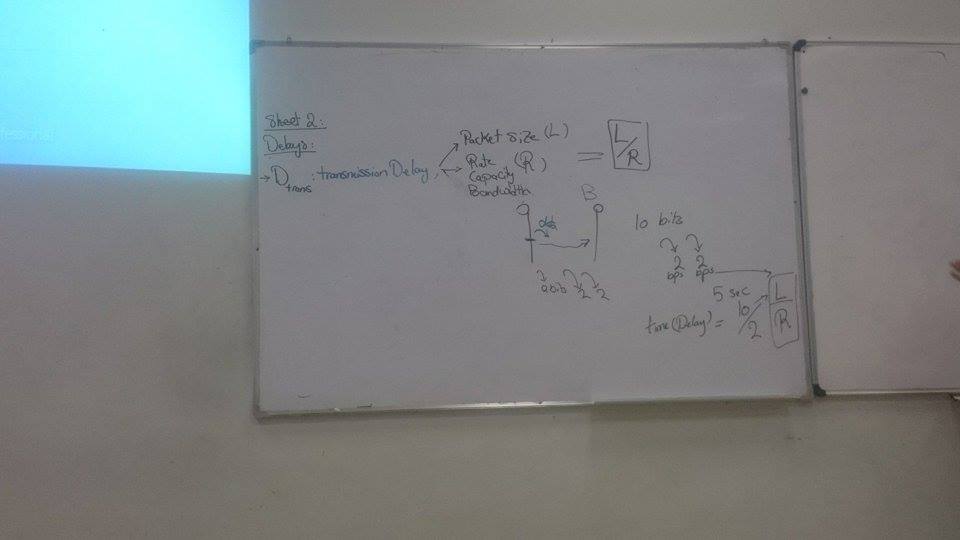 Sheet 2:
Delays:
→ D trans : transmission Delay,
Packet size (L)
Rate (R)
Capacity
Bandwidth
= L/R
B
data
2 bib 2 2
10 bits
2 2
bps bps
5 sec
time (Delay) = 10/2
L
R
fessional